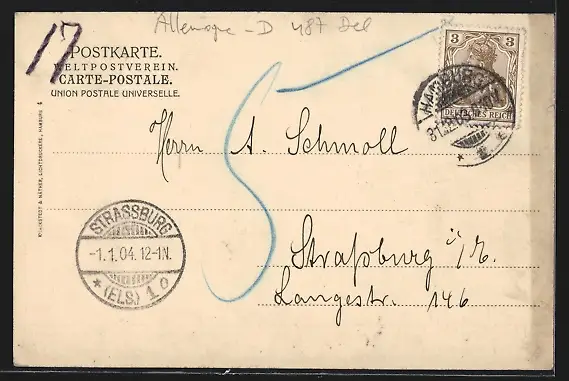 Allemagne - D 487 Del
17
POSTKARTE.
WELTPOSTVEREIN.
CARTE-POSTALE.
UNION POSTALE UNIVERSELLE.
3 3
DEUTSCHES REICH
HAMBURG
31.12.03
Herrn A. Schmoll
5
STRASSBURG
-1.1.04.12-1N.
* (ELS.) 1 o
Straßburg i/E.
Langestr. 146
KNACKSTEDT & NÄTHER, LICHTDRUCKEREI, HAMBURG